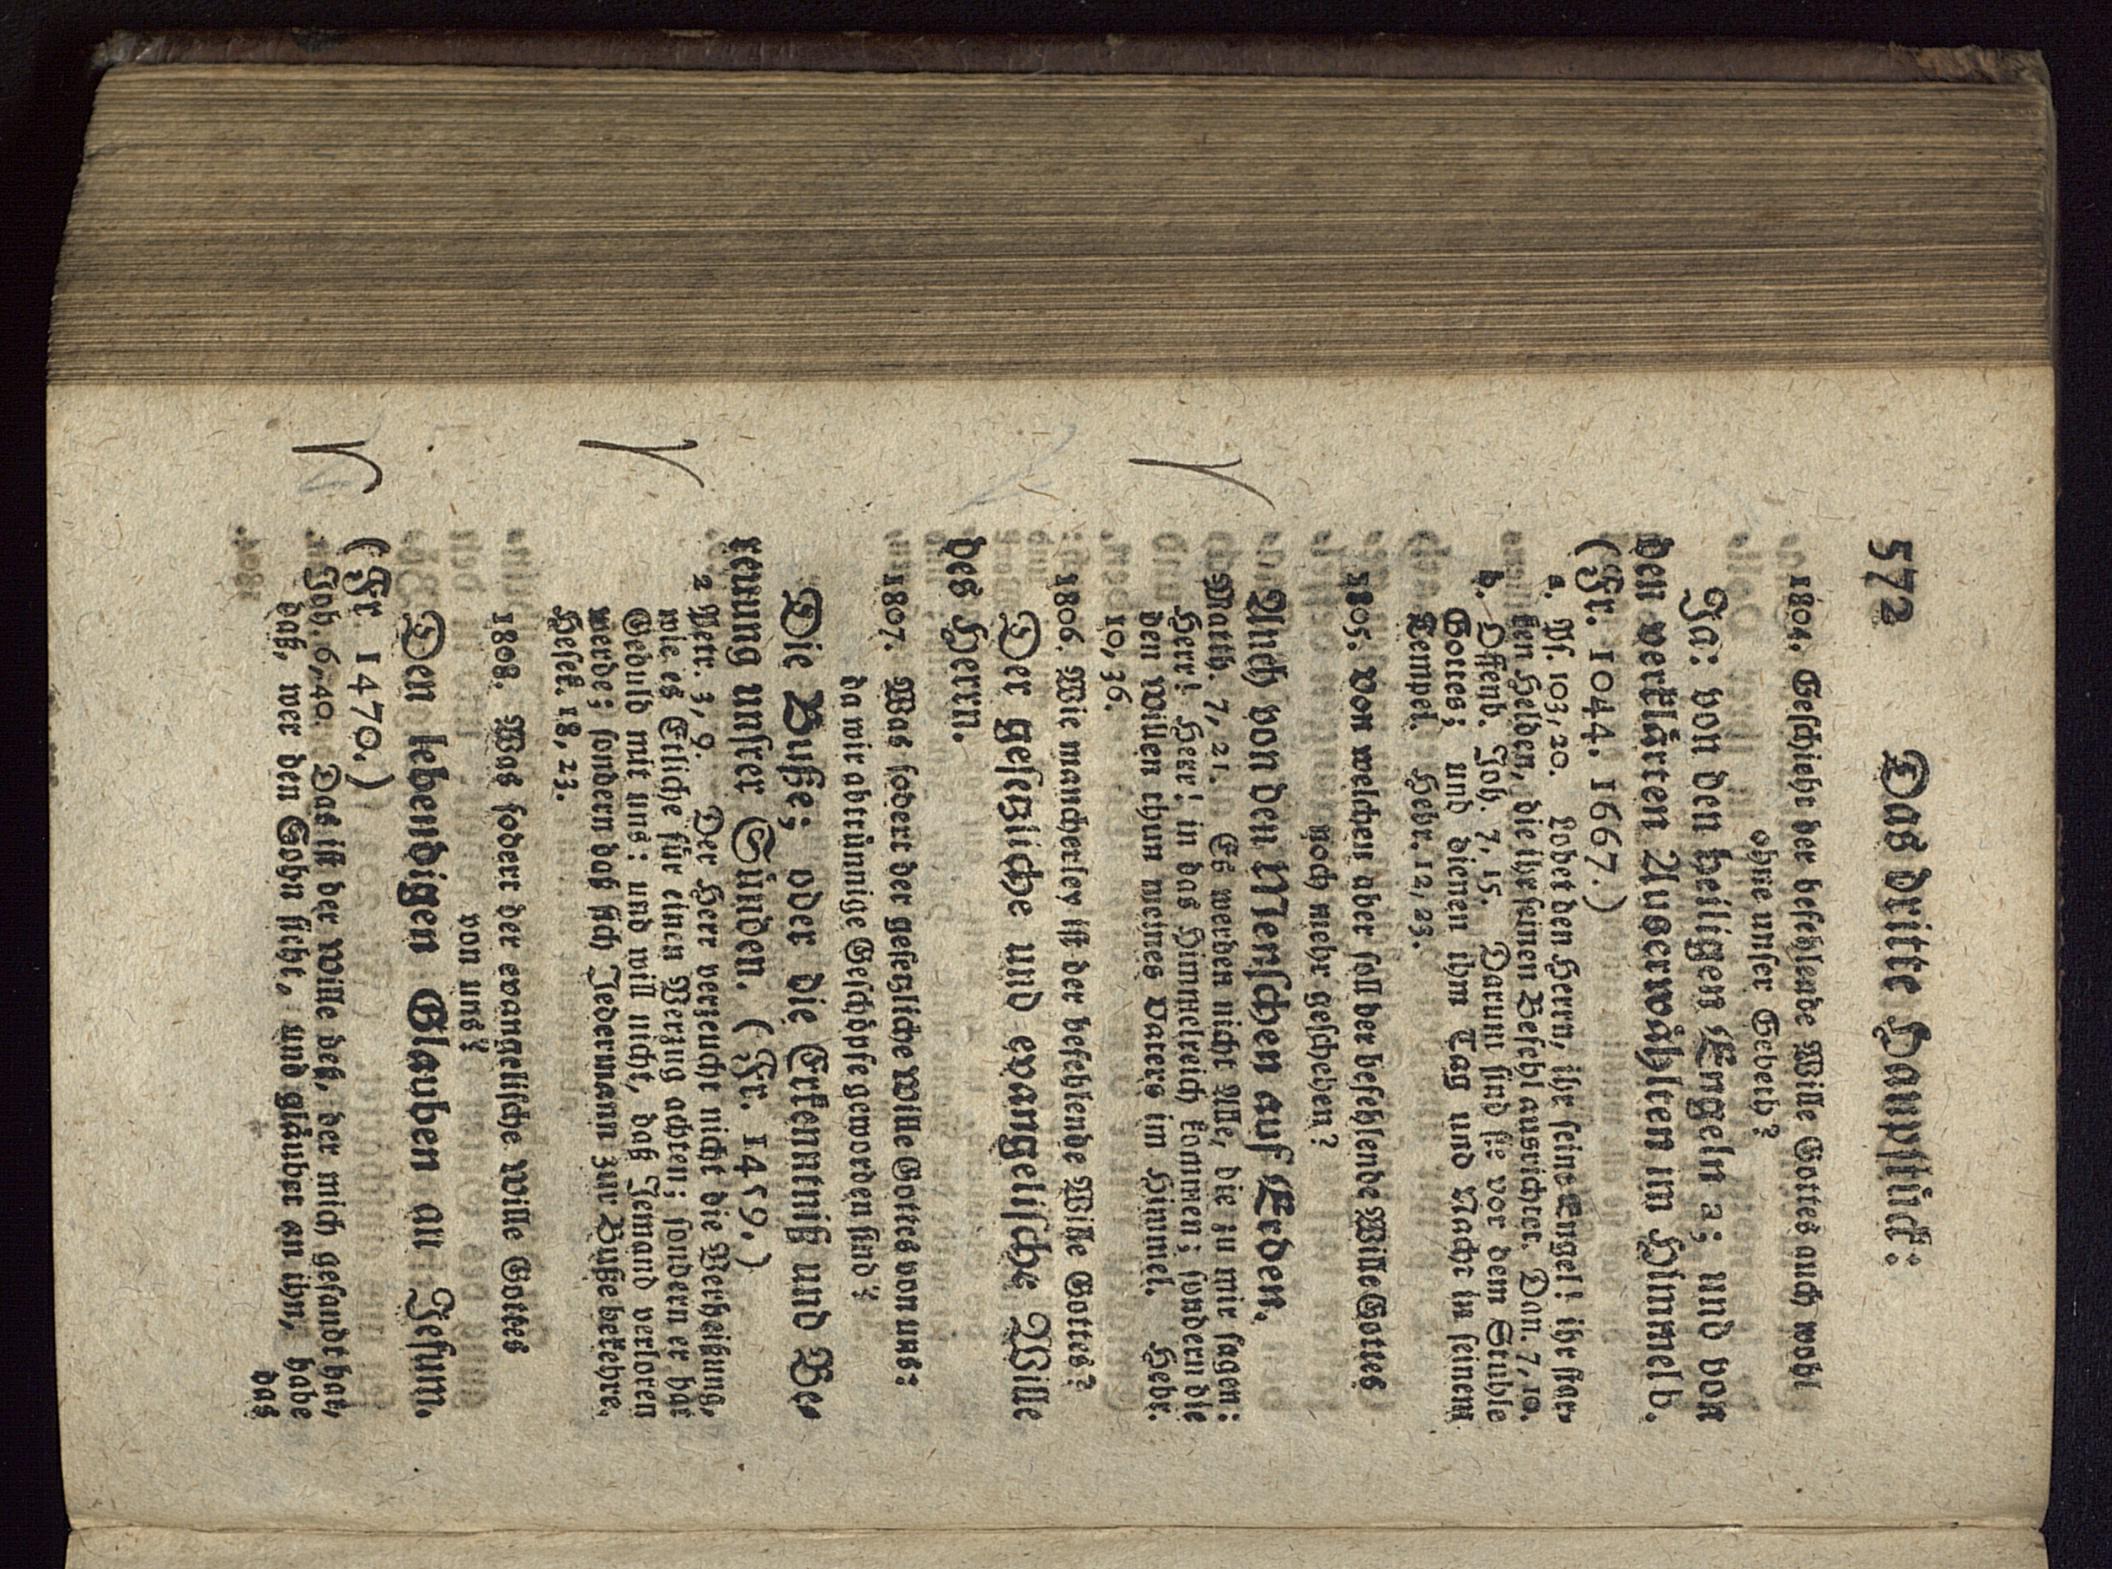 572 Das dritte Hauptstück:
1804. Geschieht der befehlende Wille Gottes auch wohl
ohne unser Gebeth?
Ja: von den heiligen Engeln a; und von
den verklärten Auserwählten im Himmel b.
(Fr. 1044. 1667.)
a. Ps. 103, 20. Lobet den Herrn, ihr seine Engel! ihr star-
ken Helden, die ihr seinen Befehl ausrichtet. Dan. 7, 10.
b. Offenb. Joh. 7, 15. Darum sind sie vor dem Stuhle
Gottes; und dienen ihm Tag und Nacht in seinem
Tempel. Hebr. 12, 23.
1805. Von welchen aber soll der befehlende Wille Gottes
noch mehr geschehen?
Auch von den Menschen auf Erden.
Matth. 7, 21. Es werden nicht Alle, die zu mir sagen:
Herr! Herr! in das Himmelreich kommen; sondern die
den Willen thun meines Vaters im Himmel. Hebr.
10, 36.
1806. Wie mancherley ist der befehlende Wille Gottes?
Der gesetzliche und evangelische Wille
des Herrn.
1807. Was fodert der gesetzliche Wille Gottes von uns:
da wir abtrünnige Geschöpfe geworden sind?
Die Buße; oder die Erkenntniß und Be-
reuung unsrer Sünden. (Fr. 1459.)
2 Petr. 3, 9. Der Herr verzeucht nicht die Verheißung,
wie es Etliche für einen Verzug achten; sondern er hat
Gedult mit uns: und will nicht, daß Jemand verloren
werde; sondern daß sich Jedermann zur Buße bekehre.
Hesek. 18, 23.
1808. Was fodert der evangelische Wille Gottes
von uns?
Den lebendigen Glauben an Jesum.
(Fr. 1470.)
Joh. 6, 40. Das ist der Wille deß, der mich gesandt hat,
daß, wer den Sohn sieht, und gläubet an ihn, habe
das